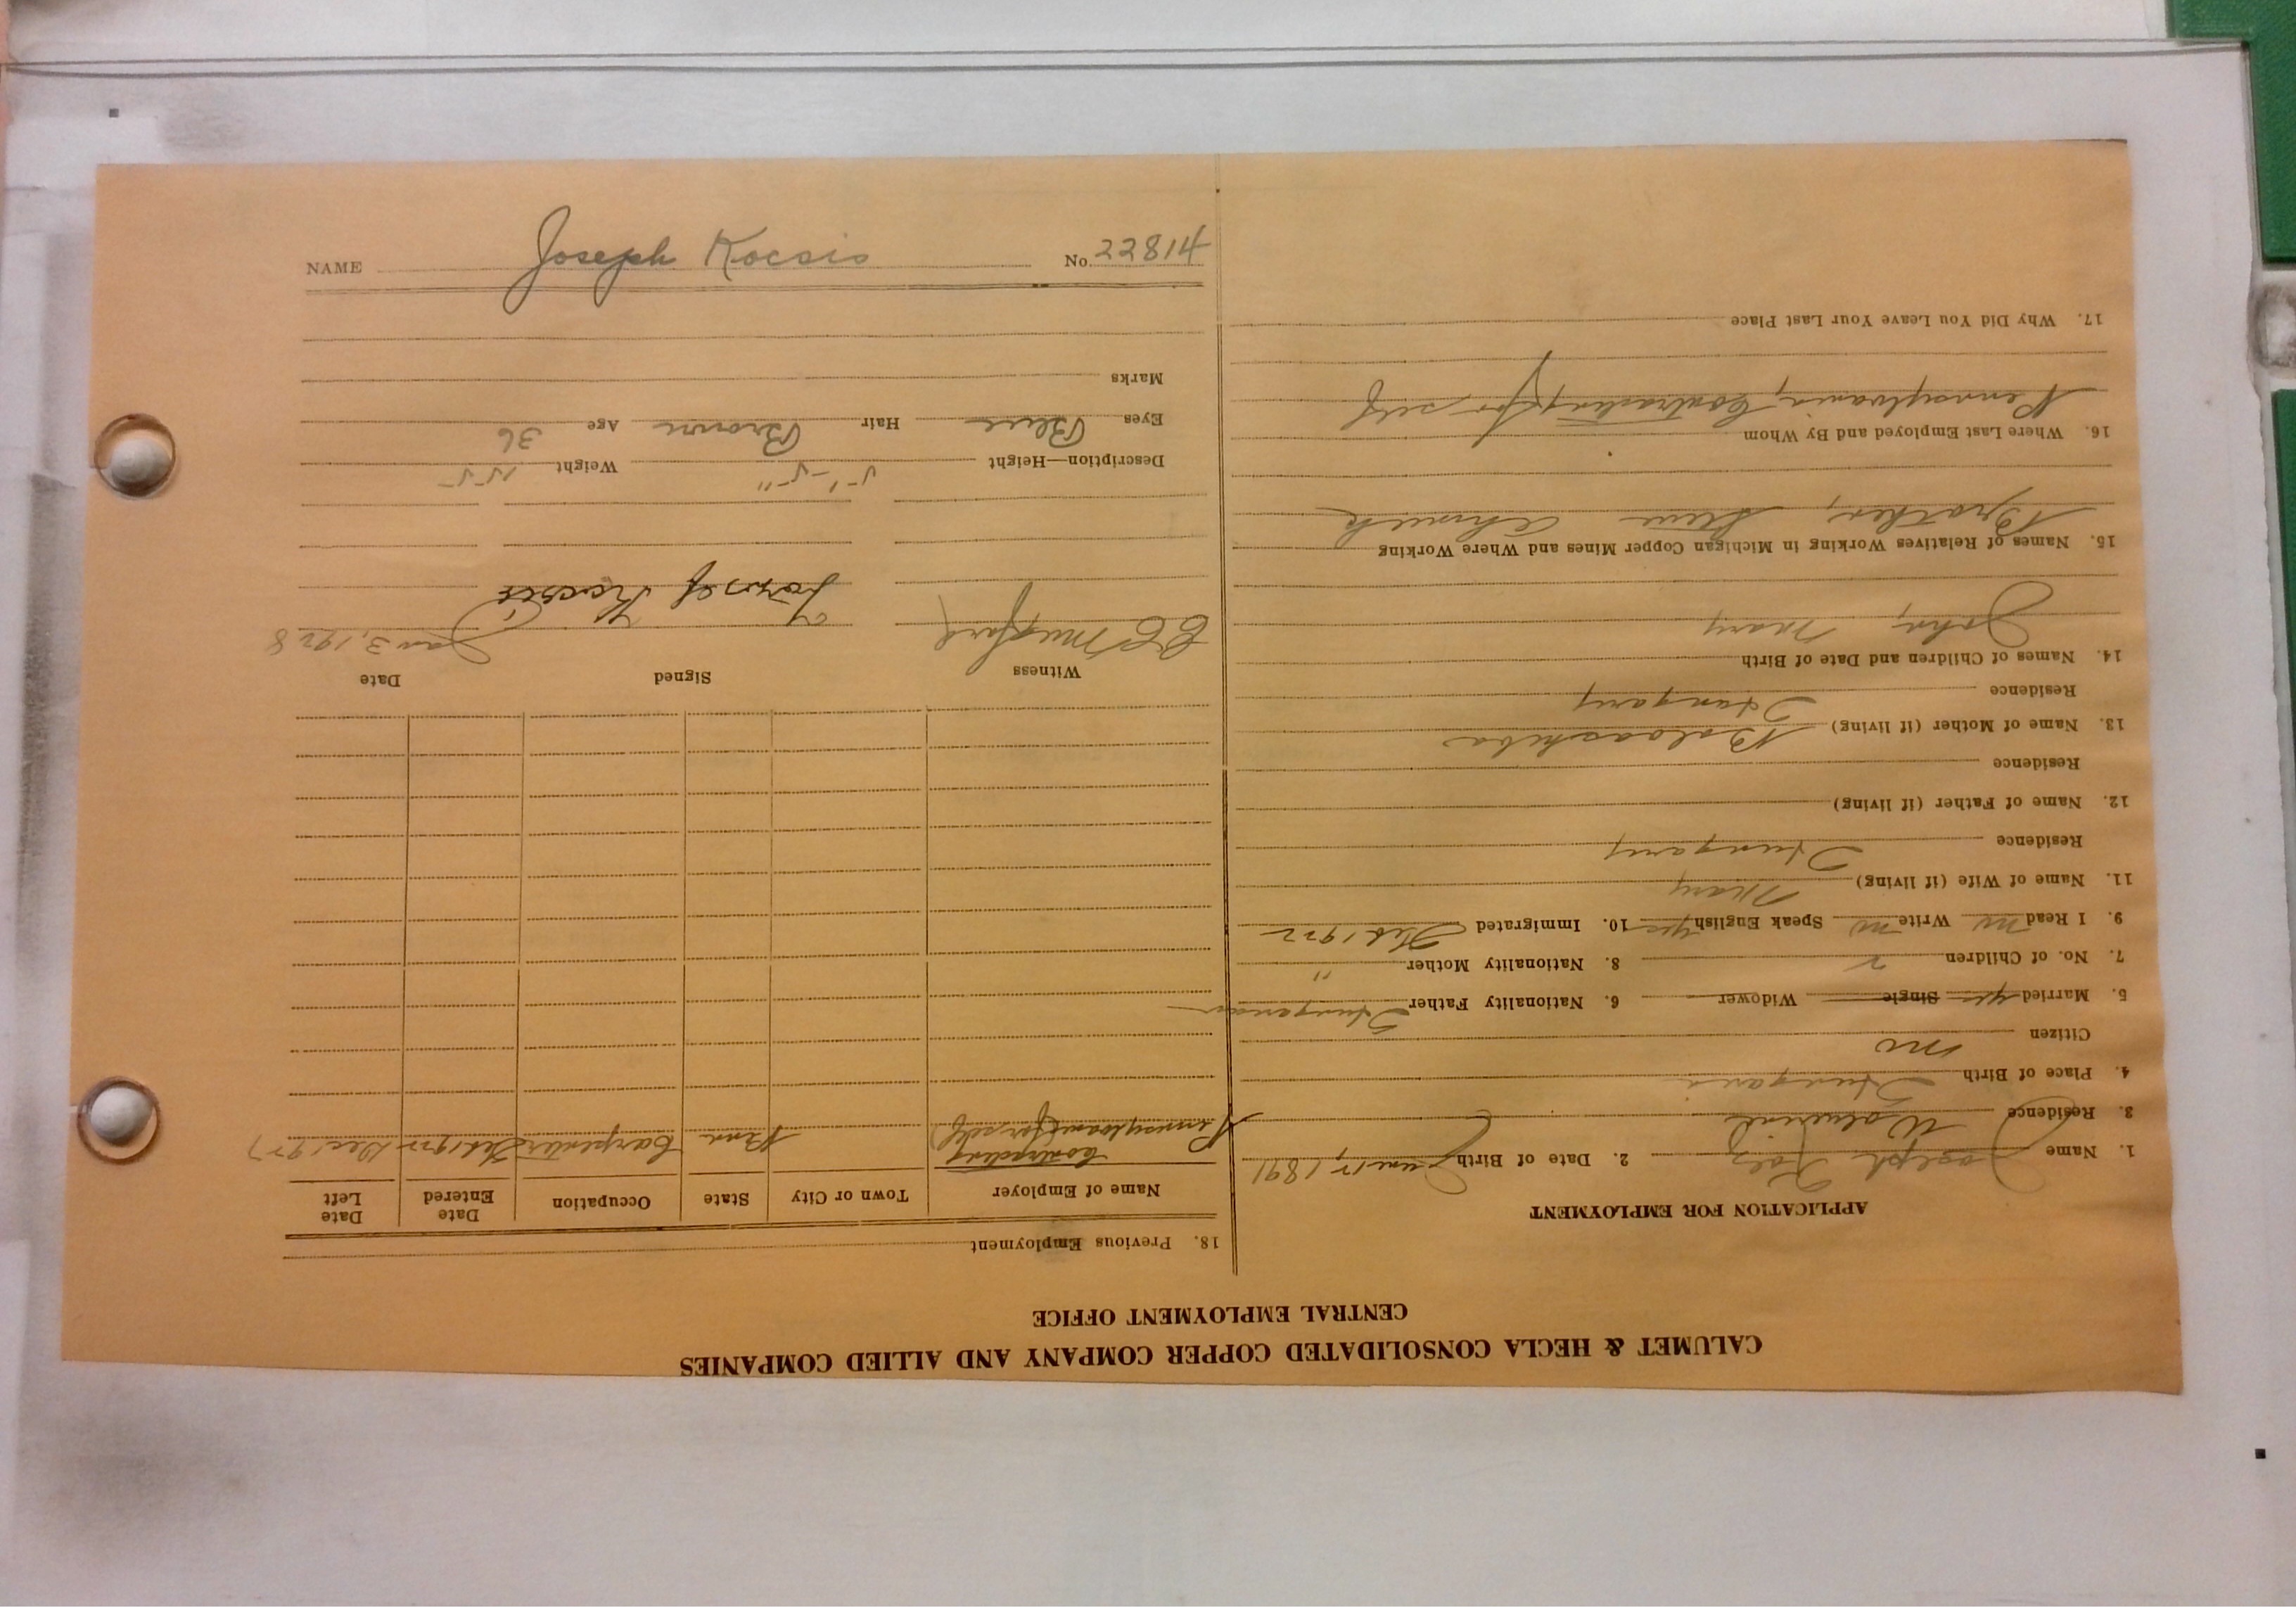 CALUMET & HECLA CONSOLIDATED COPPER COMPANY AND ALLIED COMPANIES
CENTRAL EMPLOYMENT OFFICE
APPLICATION FOR EMPLOYMENT
1. Name Joseph 2. Date of Birth June 15, 1891
3. Residence Wolverine
4. Place of Birth Hungaria
Citizen no
5. Married yes Single Widower 6. Nationality Father Hungarian
7. No. of Children 2 8. Nationality Mother "
9. I Read no Write no Speak English yes 10. Immigrated Feb 1922
11. Name of Wife (if living) Mary
Residence Hungary
12. Name of Father (if living)
Residence
13. Name of Mother (if living)
Residence Hungary
14. Names of Children and Date of Birth
John, Mary
15. Names of Relatives Working in Michigan Copper Mines and Where Working
Brother, Steve Ahmeek
16. Where Last Employed and By Whom
Pennsylvania, Contracting for self
17. Why Did You Leave Your Last Place
18. Previous Employment
Name of Employer Town or City State Occupation Date Entered Date Left
Contracting
Pennsylvania (for self) Penn Carpenter Feb 1922 Dec 1927
Witness Signed Date
Kocsis Jan 3, 1928
Description—Height 5'-5" Weight 155
Eyes Blue Hair Brown Age 36
Marks
NAME Joseph Kocsis No. 22814